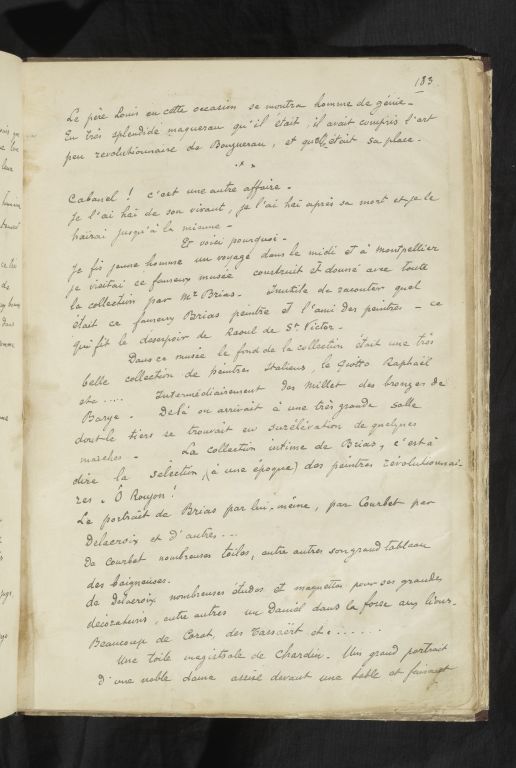 183
Le père Louis en cette occasion se montra homme de génie -
En très splendide maquereau qu'il était, il avait compris l'art
peu revolutionnaire de Bouguereau, et quelle était sa place.
* *
Cabanel ! c'est une autre affaire -
Je l'ai haï de son vivant, je l'ai haï après sa mort et je le
haïrai jusqu'à la mienne -
Et voici pourquoi -
Je fis jeune homme un voyage dans le midi et à Montpellier
je visitai ce fameux musée construit et donné avec toute
la collection par Mr Brias. Inutile de raconter quel
était ce fameux Brias peintre et l'ami des peintres - ce
qui fit le desespoir de Raoul de St. Victor -
Dans ce musée le fond de la collection était une très
belle collection de peintres Italiens, le Giotto Raphaël
etc ..... Intermédiairement des Millet des bronzes de
Barye - De là on arrivait à une très grande salle
dont le tiers se trouvait en surélévation de quelques
marches - La collection intime de Brias, c'est à
dire la selection (à une epoque) des peintres révolutionnai-
res. Ô Roujon !
Le portrait de Brias par lui-même, par Courbet par
Delacroix et d'autres...
De Courbet nombreuses toiles, entre autres son grand tableau
des baigneuses.
de Delacroix nombreuses études et maquettes pour ses grandes
decorations, entre autres un Daniel dans la fosse aux lions.
Beaucoup de Corot, des Tassaërt etc.......
Une toile magistrale de Chardin. Un grand portrait
d'une noble dame assise devant une table et faisant